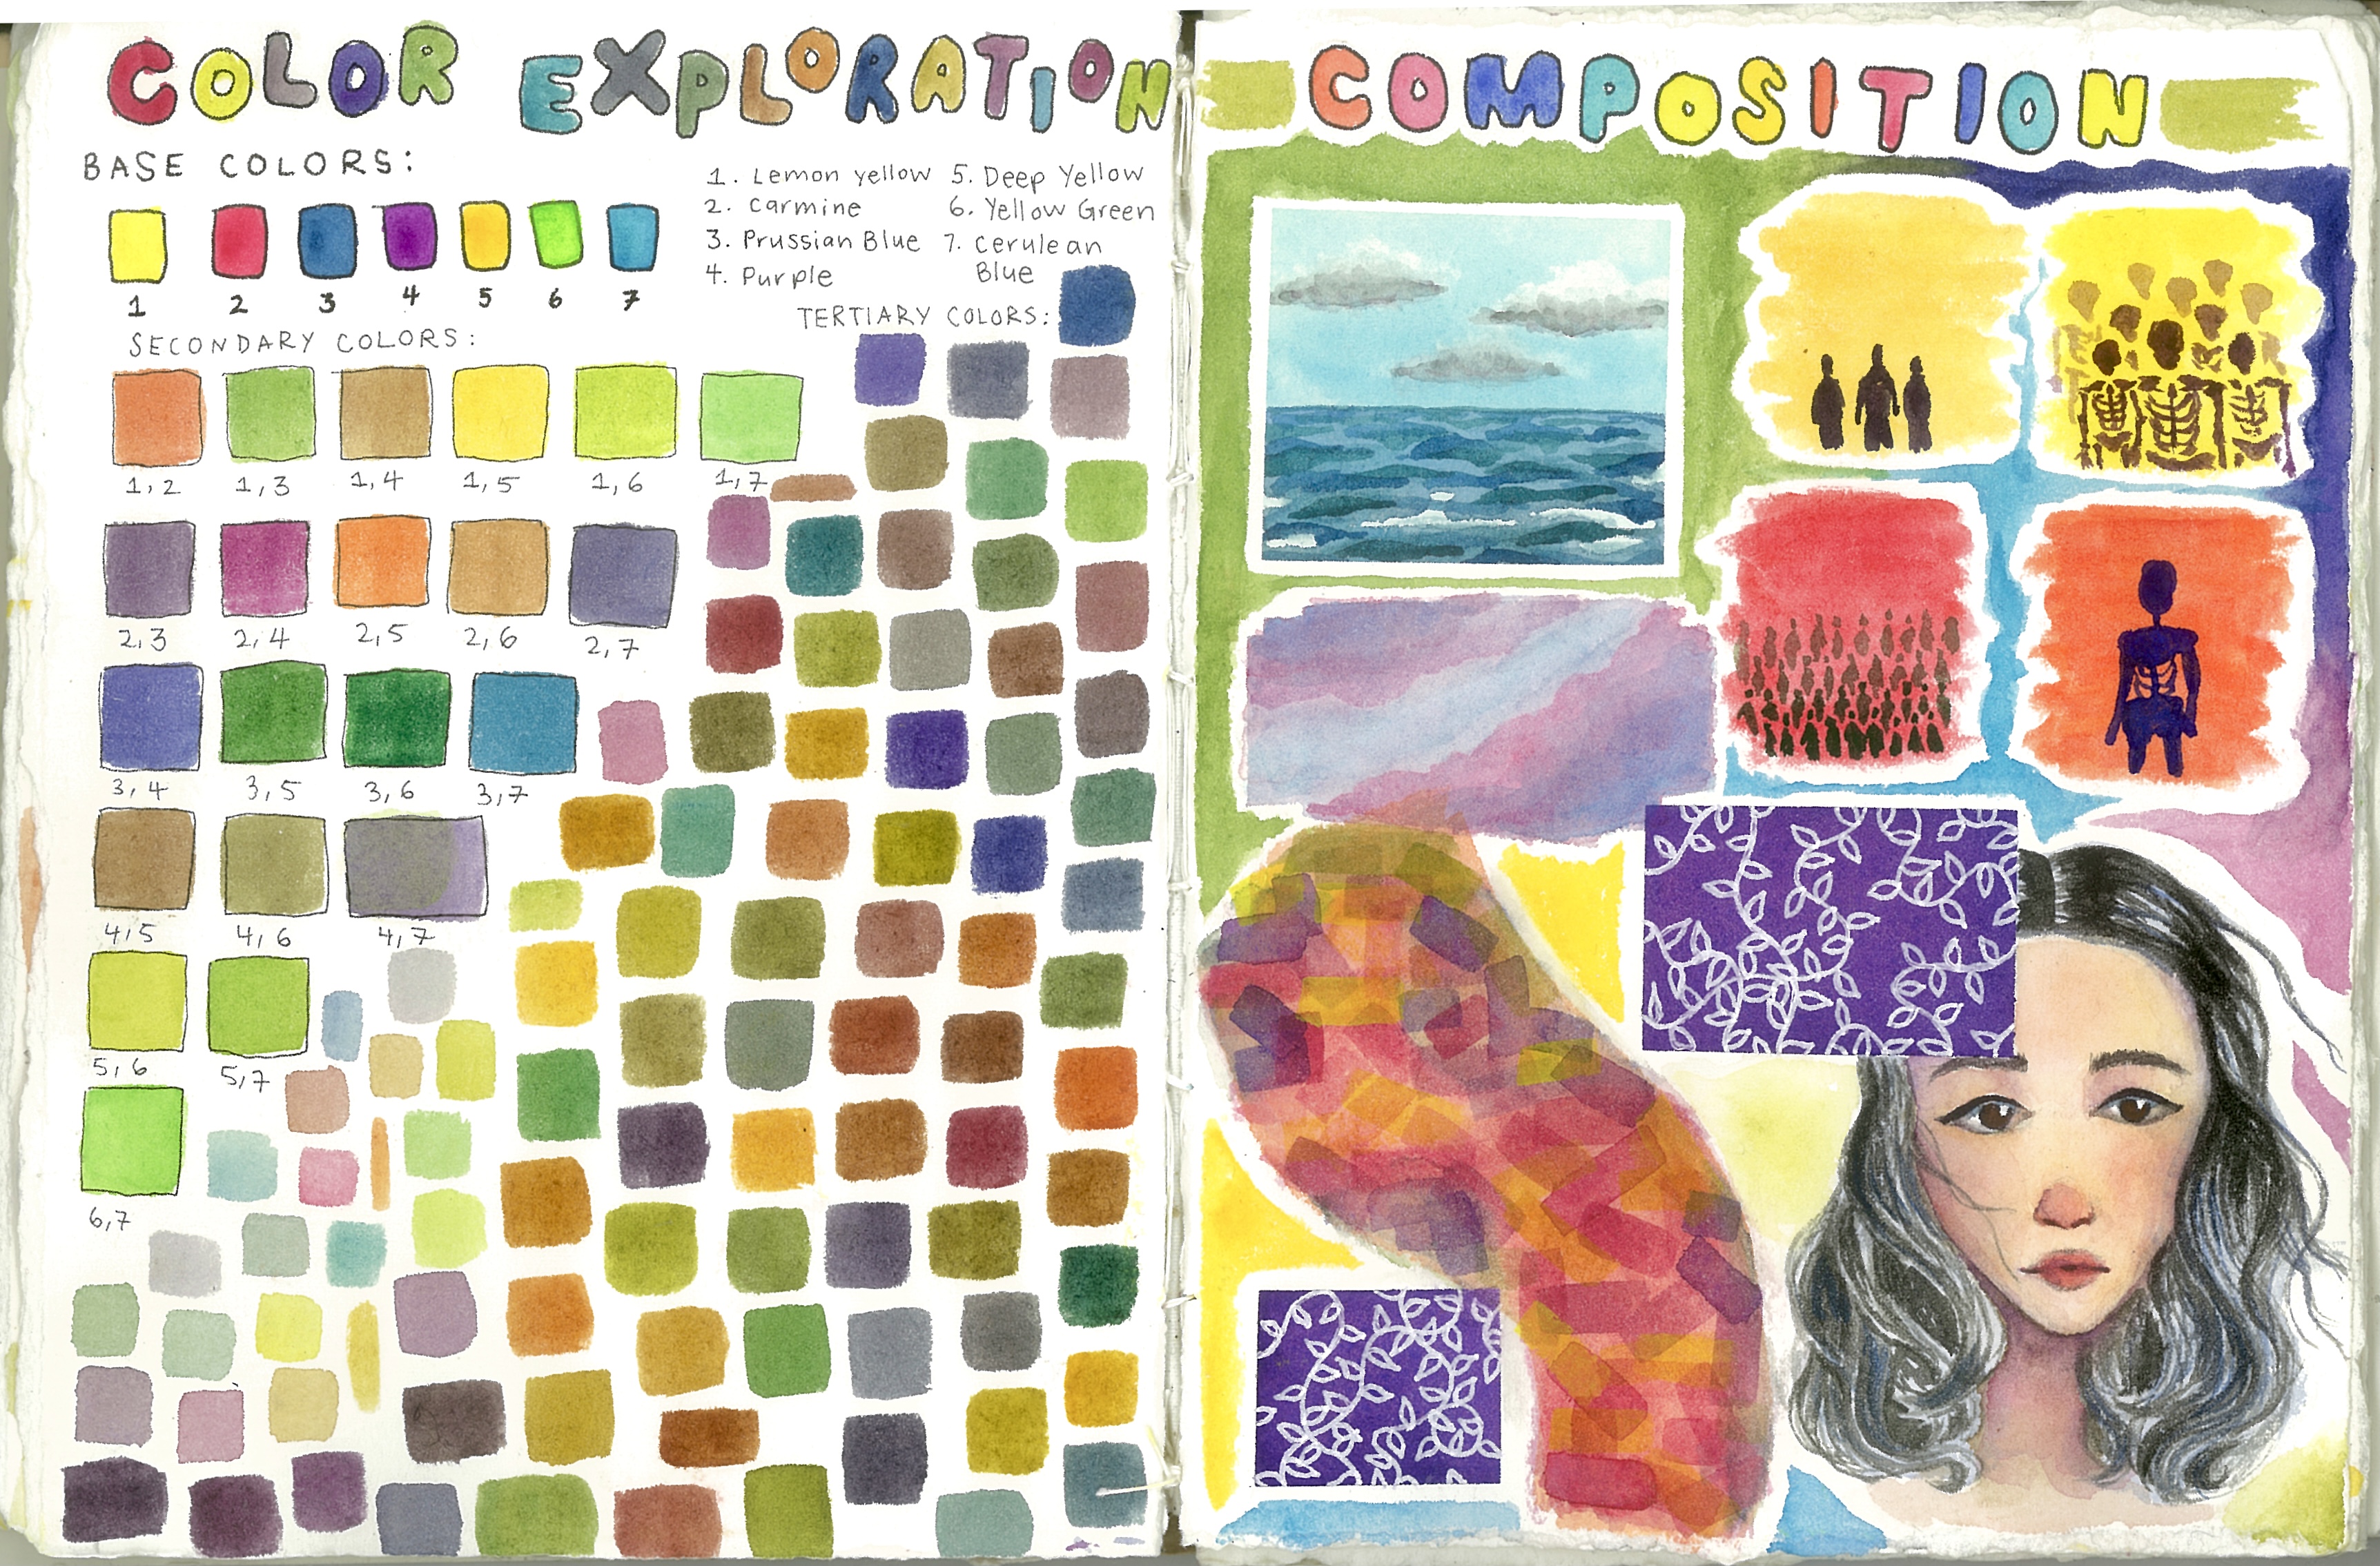 COLOR EXPLORATION
BASE COLORS:
1 2 3 4 5 6 7
1. Lemon yellow
2. Carmine
3. Prussian Blue
4. Purple
5. Deep Yellow
6. Yellow Green
7. Cerulean
Blue
SECONDARY COLORS:
1,2 1,3 1,4 1,5 1,6 1,7
2,3 2,4 2,5 2,6 2,7
3,4 3,5 3,6 3,7
4,5 4,6 4,7
5,6 5,7
6,7
TERTIARY COLORS:
COMPOSITION